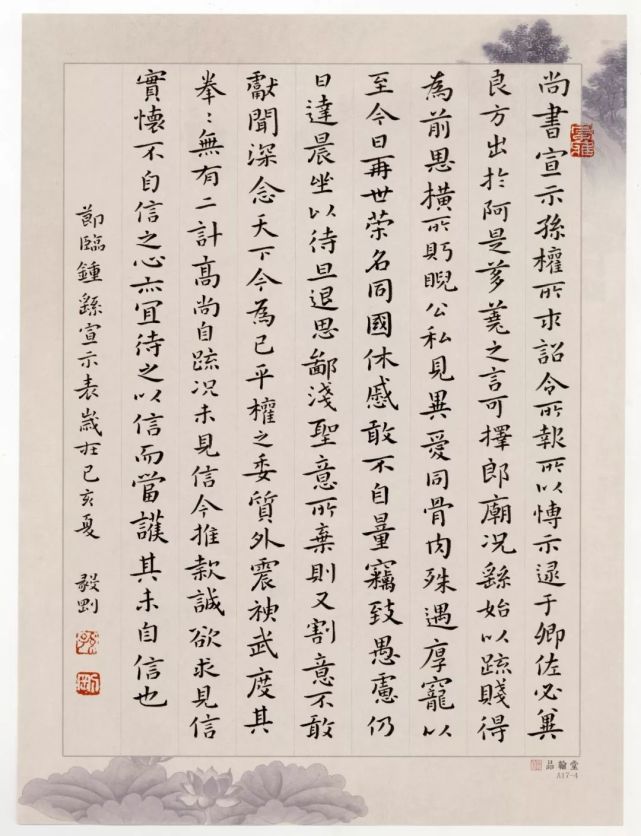 尚書宣示孫權所求詔令所報所以博示逮于卿佐必冀
良方出於阿是芻蕘之言可擇郎廟況繇始以疏賤得
為前恩橫所眄睨公私見異愛同骨肉殊遇厚寵以
至今日再世榮名同國休慼敢不自量竊致愚慮仍
日達晨坐以待旦退思鄙淺聖意所棄則又割意不敢
獻聞深念天下今為已平權之委質外震神武度其
拳〻無有二計高尚自疏況未見信今推款誠欲求見信
實懷不自信之心亦宜待之以信而當護其未自信也
節臨鍾繇宣示表歲在己亥夏 毅剛
品翰堂
A17-4